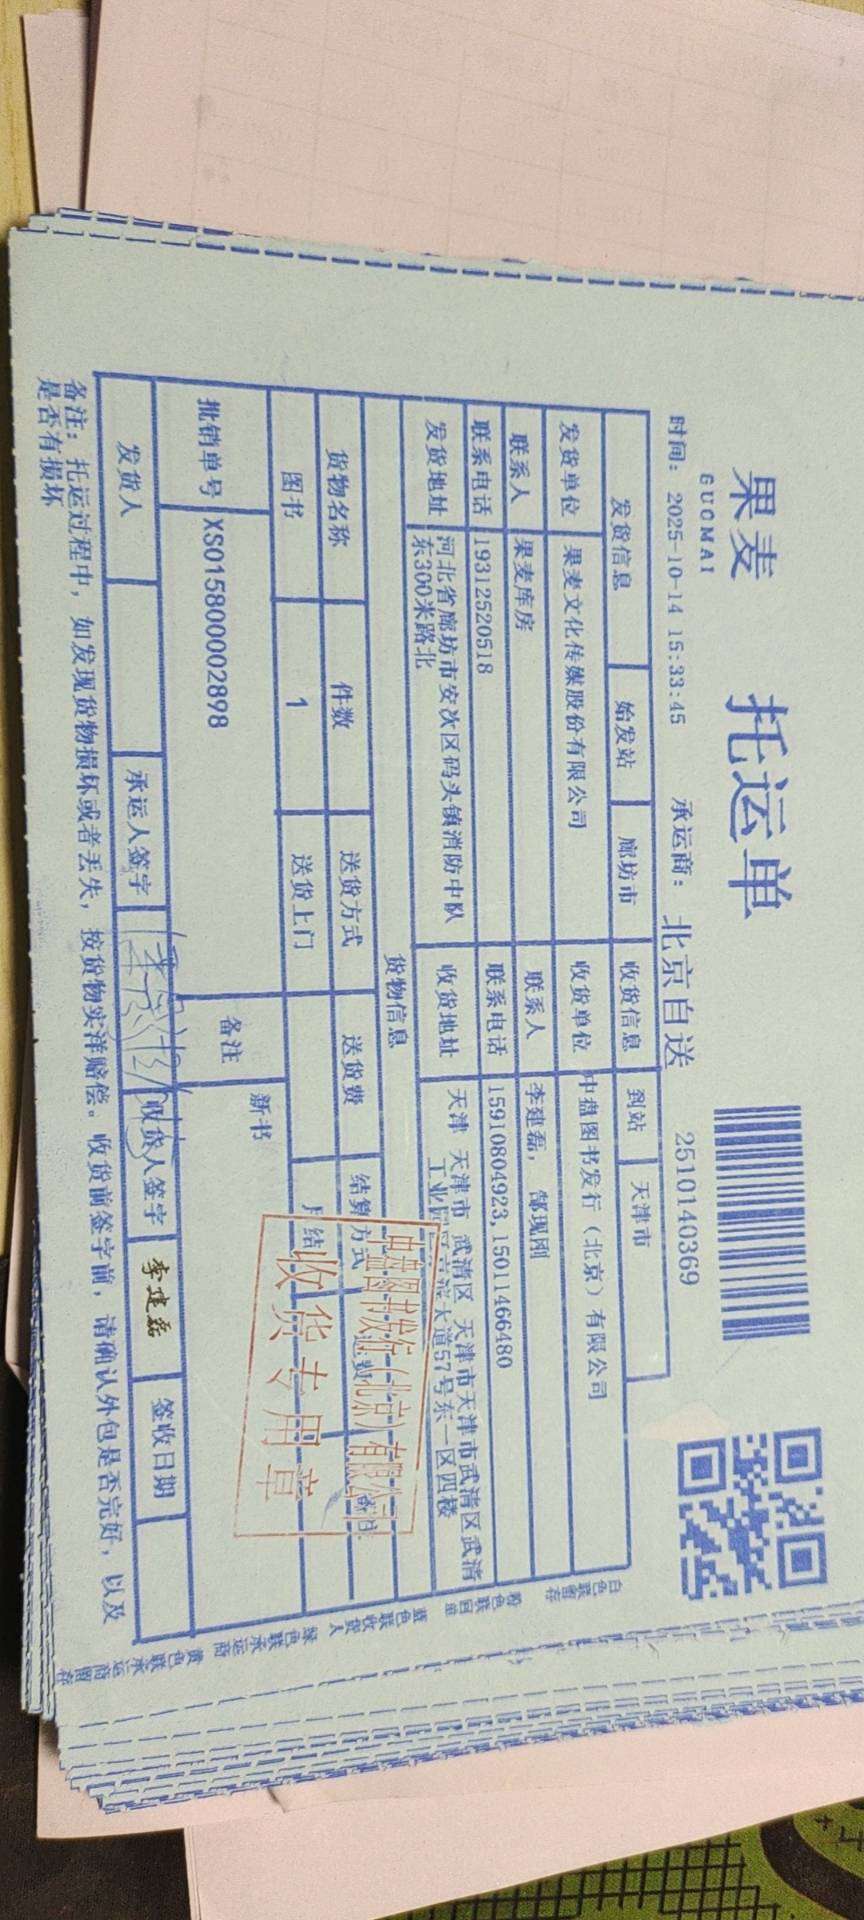 果麦
GUOMAI
托运单
时间: 2025-10-14 15:33:45 承运商: 北京自送 2510140369
发货信息 始发站 廊坊市 收货信息 到站 天津市
发货单位 果麦文化传媒股份有限公司 收货单位 中盘图书发行（北京）有限公司
联系人 果麦库房 联系人 李建磊, 郜现刚
联系电话 19312520518 联系电话 15910804923,15011466480
发货地址 河北省廊坊市安次区码头镇消防中队
东300米路北
收货地址 天津 天津市 武清区 天津市天津市武清区武清
工业 大道57号东一区四楼
货物信息
货物名称 件数 送货方式 送货费 结算方式
图书 1 送货上门 月结
中盘图书发行（北京）有限公司
收货专用章
批销单号 XS015800002898 备注 新书
发货人 承运人签字 收货人签字 李建磊 签收日期
备注: 托运过程中, 如发现货物损坏或者丢失, 按货物实洋赔偿。收货前签字前, 请确认外包是否完好, 以及
是否有损坏
白色联留存 粉色联回单 蓝色联收货人 绿色联承运商 黄色联承运商留存